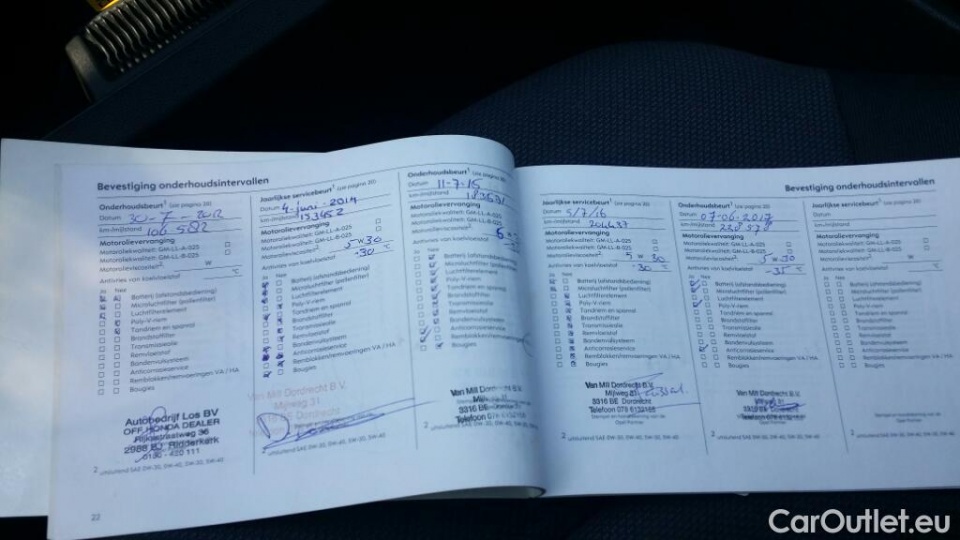 Bevestiging onderhoudsintervallen
Onderhoudsbeurt¹ (zie pagina 20)
Datum 30-7-2012
km-(mijl)stand 104 582
Motorolieverversing
Motoroliekwaliteit: GM-LL-A-025
Motoroliekwaliteit: GM-LL-B-025
Motorolieviscositeit²: W
Antivries van koelvloeistof °C
Ja Nee
Batterij (afstandsbediening)
Microluchtfilter (pollenfilter)
Luchtfilterelement
Poly-V-riem
Tandriem en spanrol
Brandstoffilter
Transmissieolie
Remvloeistof
Bandenvulsysteem
Anticorrosieservice
Remblokken/remvoeringen VA / HA
Bougies
Autobedrijf Los BV
OFF. HONDA DEALER
Rijksstraatweg 36
2988 BJ Ridderkerk
0180 - 420 111
² uitsluitend SAE 0W-30, 0W-40, 5W-30, 5W-40
22
Jaarlijkse servicebeurt¹ (zie pagina 20)
Datum 4-juni-2014
km-(mijl)stand 153452
Motorolieverversing
Motoroliekwaliteit: GM-LL-A-025
Motoroliekwaliteit: GM-LL-B-025
Motorolieviscositeit²: 5W30
Antivries van koelvloeistof -30 °C
Ja Nee
Batterij (afstandsbediening)
Microluchtfilter (pollenfilter)
Luchtfilterelement
Poly-V-riem
Tandriem en spanrol
Brandstoffilter
Transmissieolie
Remvloeistof
Bandenvulsysteem
Anticorrosieservice
Remblokken/remvoeringen VA / HA
Bougies
Van Mill Dordrecht B.V.
Mijlweg 31
3316 BE Dordrecht
² uitsluitend SAE 0W-30, 0W-40, 5W-30, 5W-40
Onderhoudsbeurt¹ (zie pagina 20)
Datum 11-7-15
km-(mijl)stand
Motorolieverversing
Motoroliekwaliteit: GM-LL-A-025
Motoroliekwaliteit: GM-LL-B-025
Motorolieviscositeit²:
Antivries van koelvloeistof
Ja Nee
Batterij (afstandsbediening)
Microluchtfilter (pollenfilter)
Luchtfilterelement
Poly-V-riem
Tandriem en spanrol
Brandstoffilter
Transmissieolie
Remvloeistof
Bandenvulsysteem
Anticorrosieservice
Remblokken/remvoeringen VA / HA
Bougies
Van Mill Dordrecht
Mijlweg
3316 BE Dordrecht
Telefoon 078 6132168
² uitsluitend SAE 0W-30, 0W-40, 5W-30, 5W-40
Bevestiging onderhoudsintervallen
Jaarlijkse servicebeurt¹ (zie pagina 20)
Datum 5/7/16
km-(mijl)stand 204437
Motorolieverversing
Motoroliekwaliteit: GM-LL-A-025
Motoroliekwaliteit: GM-LL-B-025
Motorolieviscositeit²: 5 W 30
Antivries van koelvloeistof -30 °C
Ja Nee
Batterij (afstandsbediening)
Microluchtfilter (pollenfilter)
Luchtfilterelement
Poly-V-riem
Tandriem en spanrol
Brandstoffilter
Transmissieolie
Remvloeistof
Bandenvulsysteem
Anticorrosieservice
Remblokken/remvoeringen VA / HA
Bougies
Van Mill Dordrecht B.V.
Mijlweg 31
3316 BE Dordrecht
Telefoon 078 6132168
² uitsluitend SAE 0W-30, 0W-40, 5W-30, 5W-40
Onderhoudsbeurt¹ (zie pagina 20)
Datum 07-06-2017
km-(mijl)stand 228 578
Motorolieverversing
Motoroliekwaliteit: GM-LL-A-025
Motoroliekwaliteit: GM-LL-B-025
Motorolieviscositeit²: 5 W 30
Antivries van koelvloeistof -35 °C
Ja Nee
Batterij (afstandsbediening)
Microluchtfilter (pollenfilter)
Luchtfilterelement
Poly-V-riem
Tandriem en spanrol
Brandstoffilter
Transmissieolie
Remvloeistof
Bandenvulsysteem
Anticorrosieservice
Remblokken/remvoeringen VA / HA
Bougies
Van Mill Dordrecht B.V.
Mijlweg 31
3316 BE Dordrecht
Telefoon 078 6132168
Stempel en handtekening van de
Opel Partner
² uitsluitend SAE 0W-30, 0W-40, 5W-30, 5W-40
Jaarlijkse servicebeurt¹ (zie pagina 20)
Datum
km-(mijl)stand
Motorolieverversing
Motoroliekwaliteit: GM-LL-A-025
Motoroliekwaliteit: GM-LL-B-025
Motorolieviscositeit²: W
Antivries van koelvloeistof °C
Ja Nee
Batterij (afstandsbediening)
Microluchtfilter (pollenfilter)
Luchtfilterelement
Poly-V-riem
Tandriem en spanrol
Brandstoffilter
Transmissieolie
Remvloeistof
Bandenvulsysteem
Anticorrosieservice
Remblokken/remvoeringen VA / HA
Bougies
Stempel en handtekening van de
Opel Partner
² uitsluitend SAE 0W-30, 0W-40, 5W-30, 5W-40
CarOutlet.eu